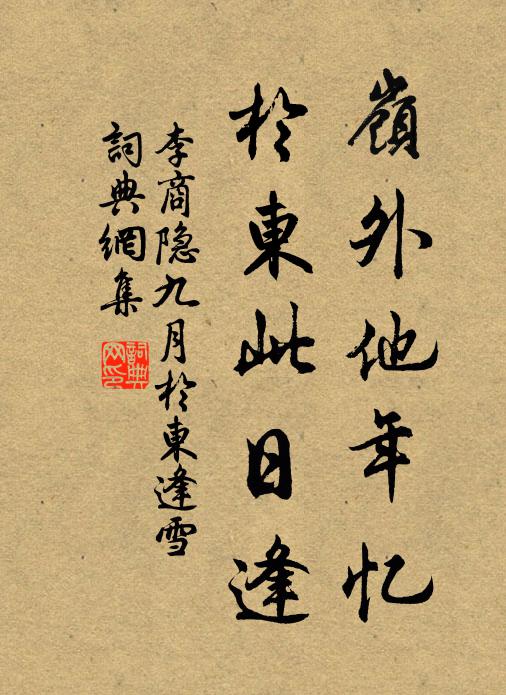 嶺外他年忆
於東此日逢
李商隐九月於東逢雪
詞典網集
詞典网印